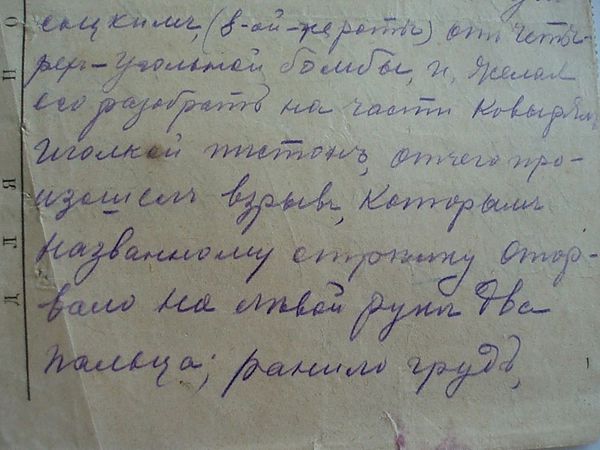 сыскимъ, (8-ой-же роты) отъ четы-
рех-угольной бомбы, и, желая
его разобрать на части ковырялъ
иголкой пистонъ, отчего про-
изошелъ взрывъ, которымъ
названному стрѣлку отор-
вало на лѣвой руки два
пальца; ранило грудь,
Д Л Я П О